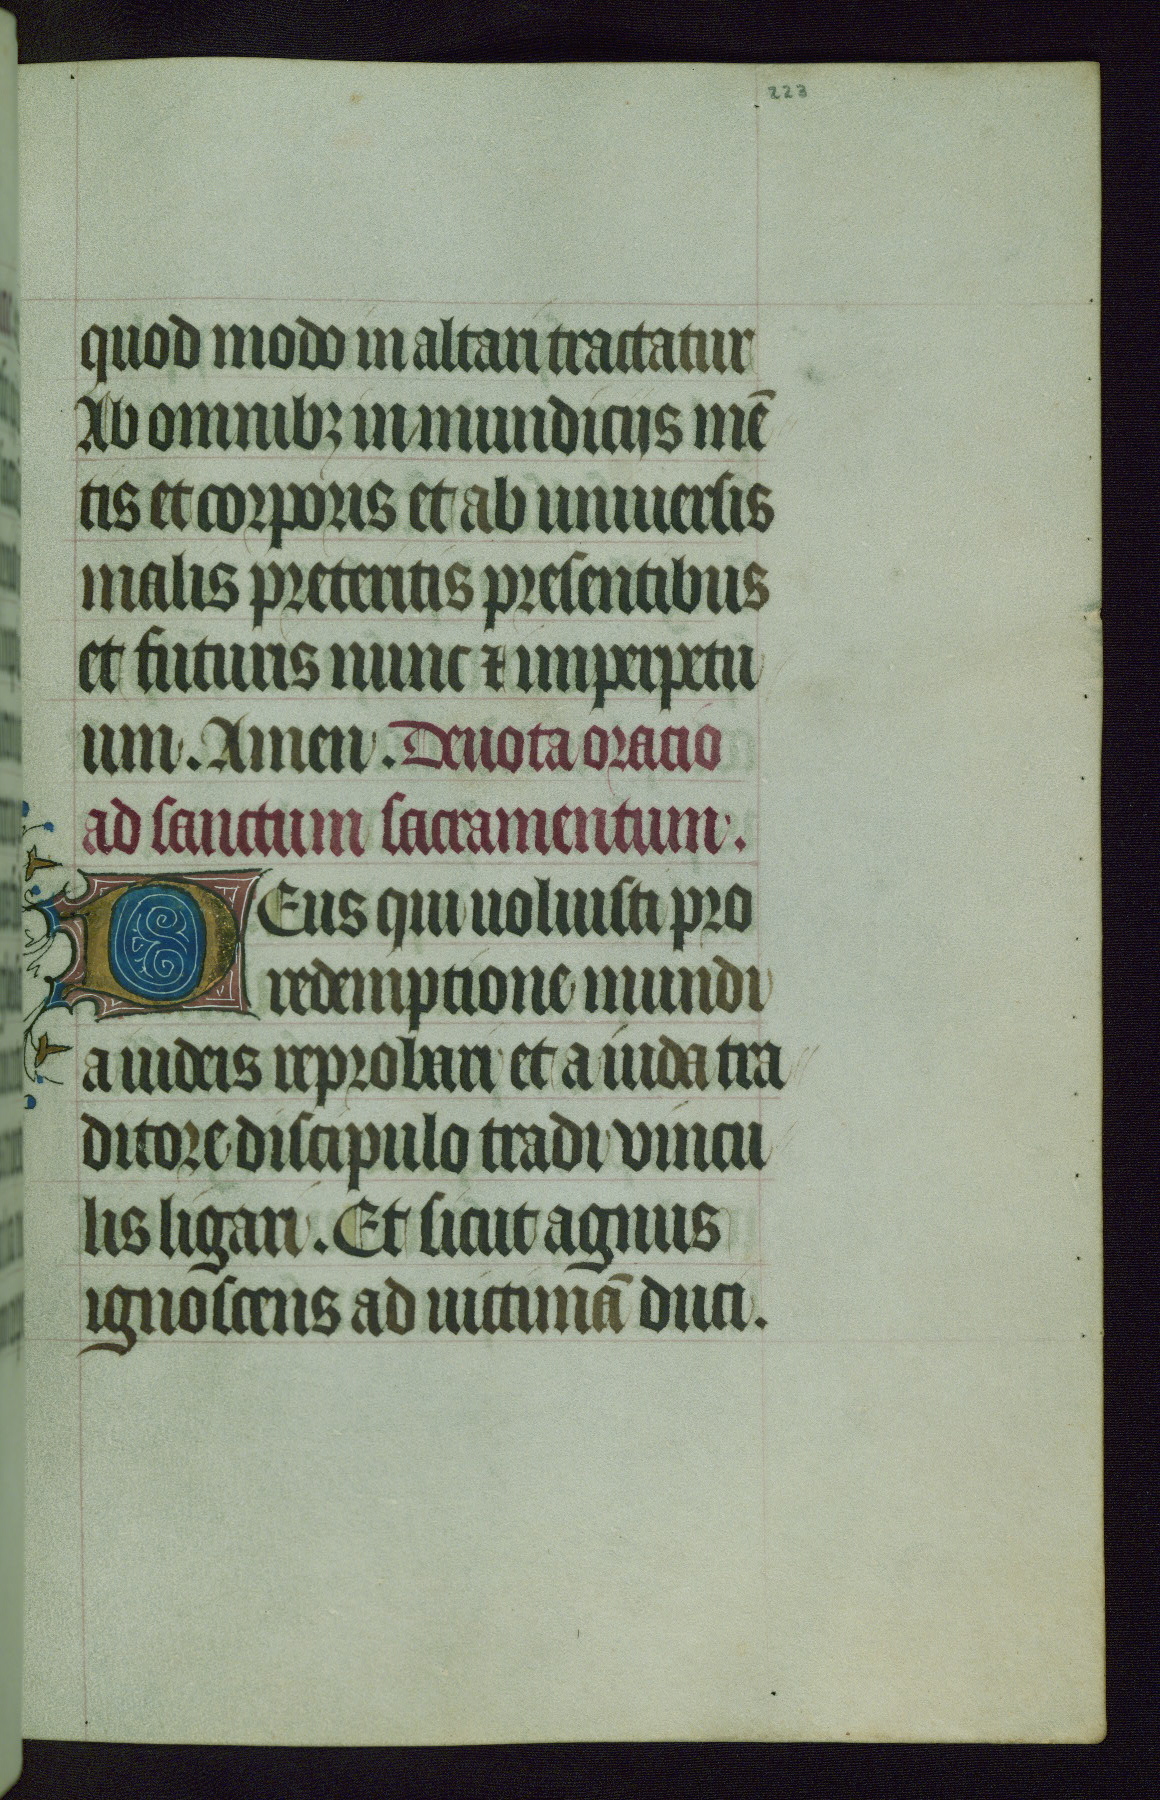 223
quod modo in altari tractatur
Ab omnibꝫ inmundicijs mē
tis et corporis et ab uniuersis
malis preteritis presentibus
et futuris nunc ⁊ imperpetu
um. Amen. Deuota oracio
ad sanctum sacramentum.
DEus qui uoluisti pro
redemptione mundi
a iudeis reprobari et a iuda tra
ditore discipulo tradi vincu
lis ligari. Et sicut agnus
ignoscens ad uictimā duci.